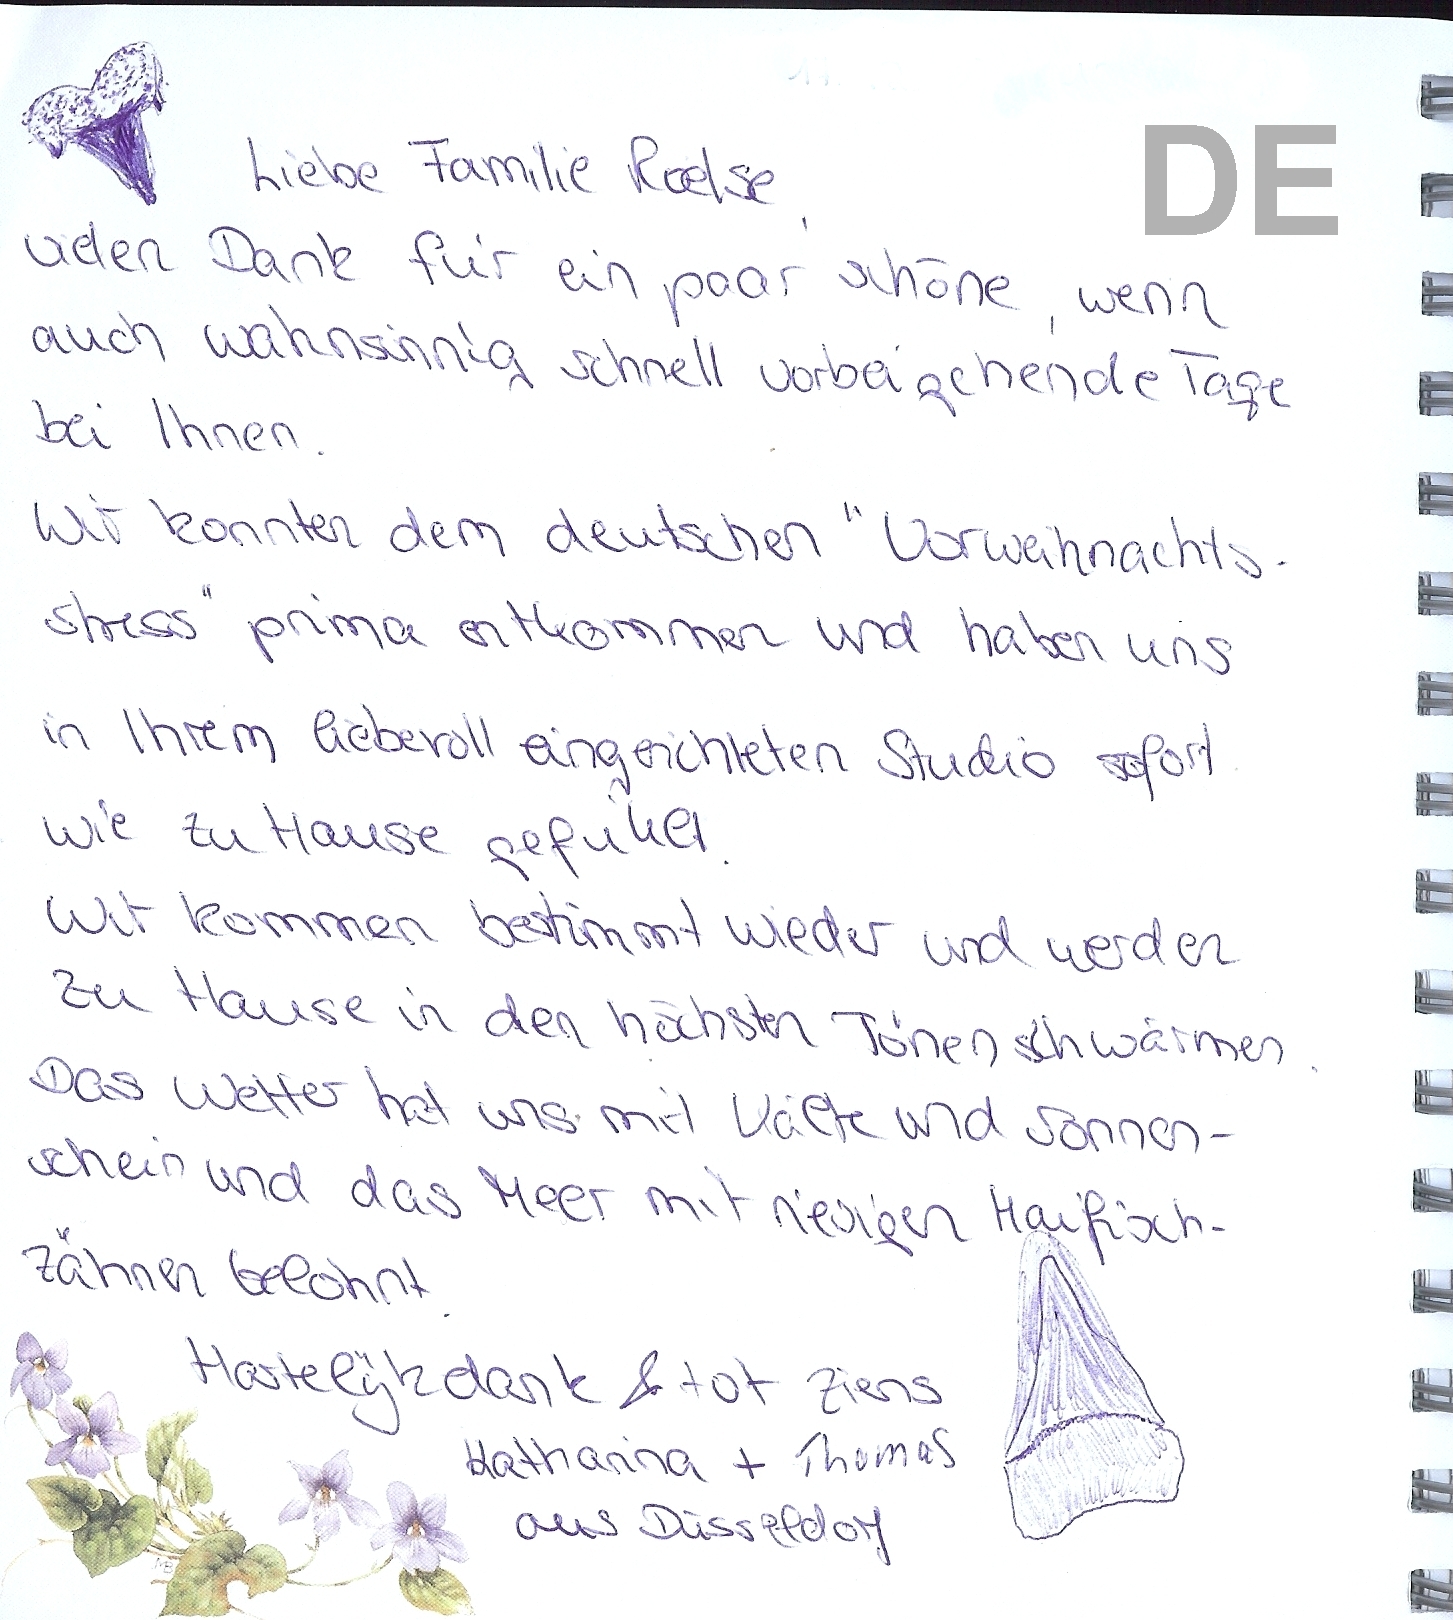 DE
Liebe Familie Roelse,
vielen Dank für ein paar schöne, wenn
auch wahnsinnig schnell vorbeigehende Tage
bei Ihnen.
Wir konnten dem deutschen "Vorweihnachts-
stress" prima entkommen und haben uns
in Ihrem liebevoll eingerichteten Studio sofort
wie zu Hause gefühlt.
Wir kommen bestimmt wieder und werden
zu Hause in den höchsten Tönen schwärmen.
Das Wetter hat uns mit Kälte und Sonnen-
schein und das Meer mit riesigen Haifisch-
zähnen belohnt.
Hartelijk dank & tot ziens
Katharina + Thomas
aus Düsseldorf
MB